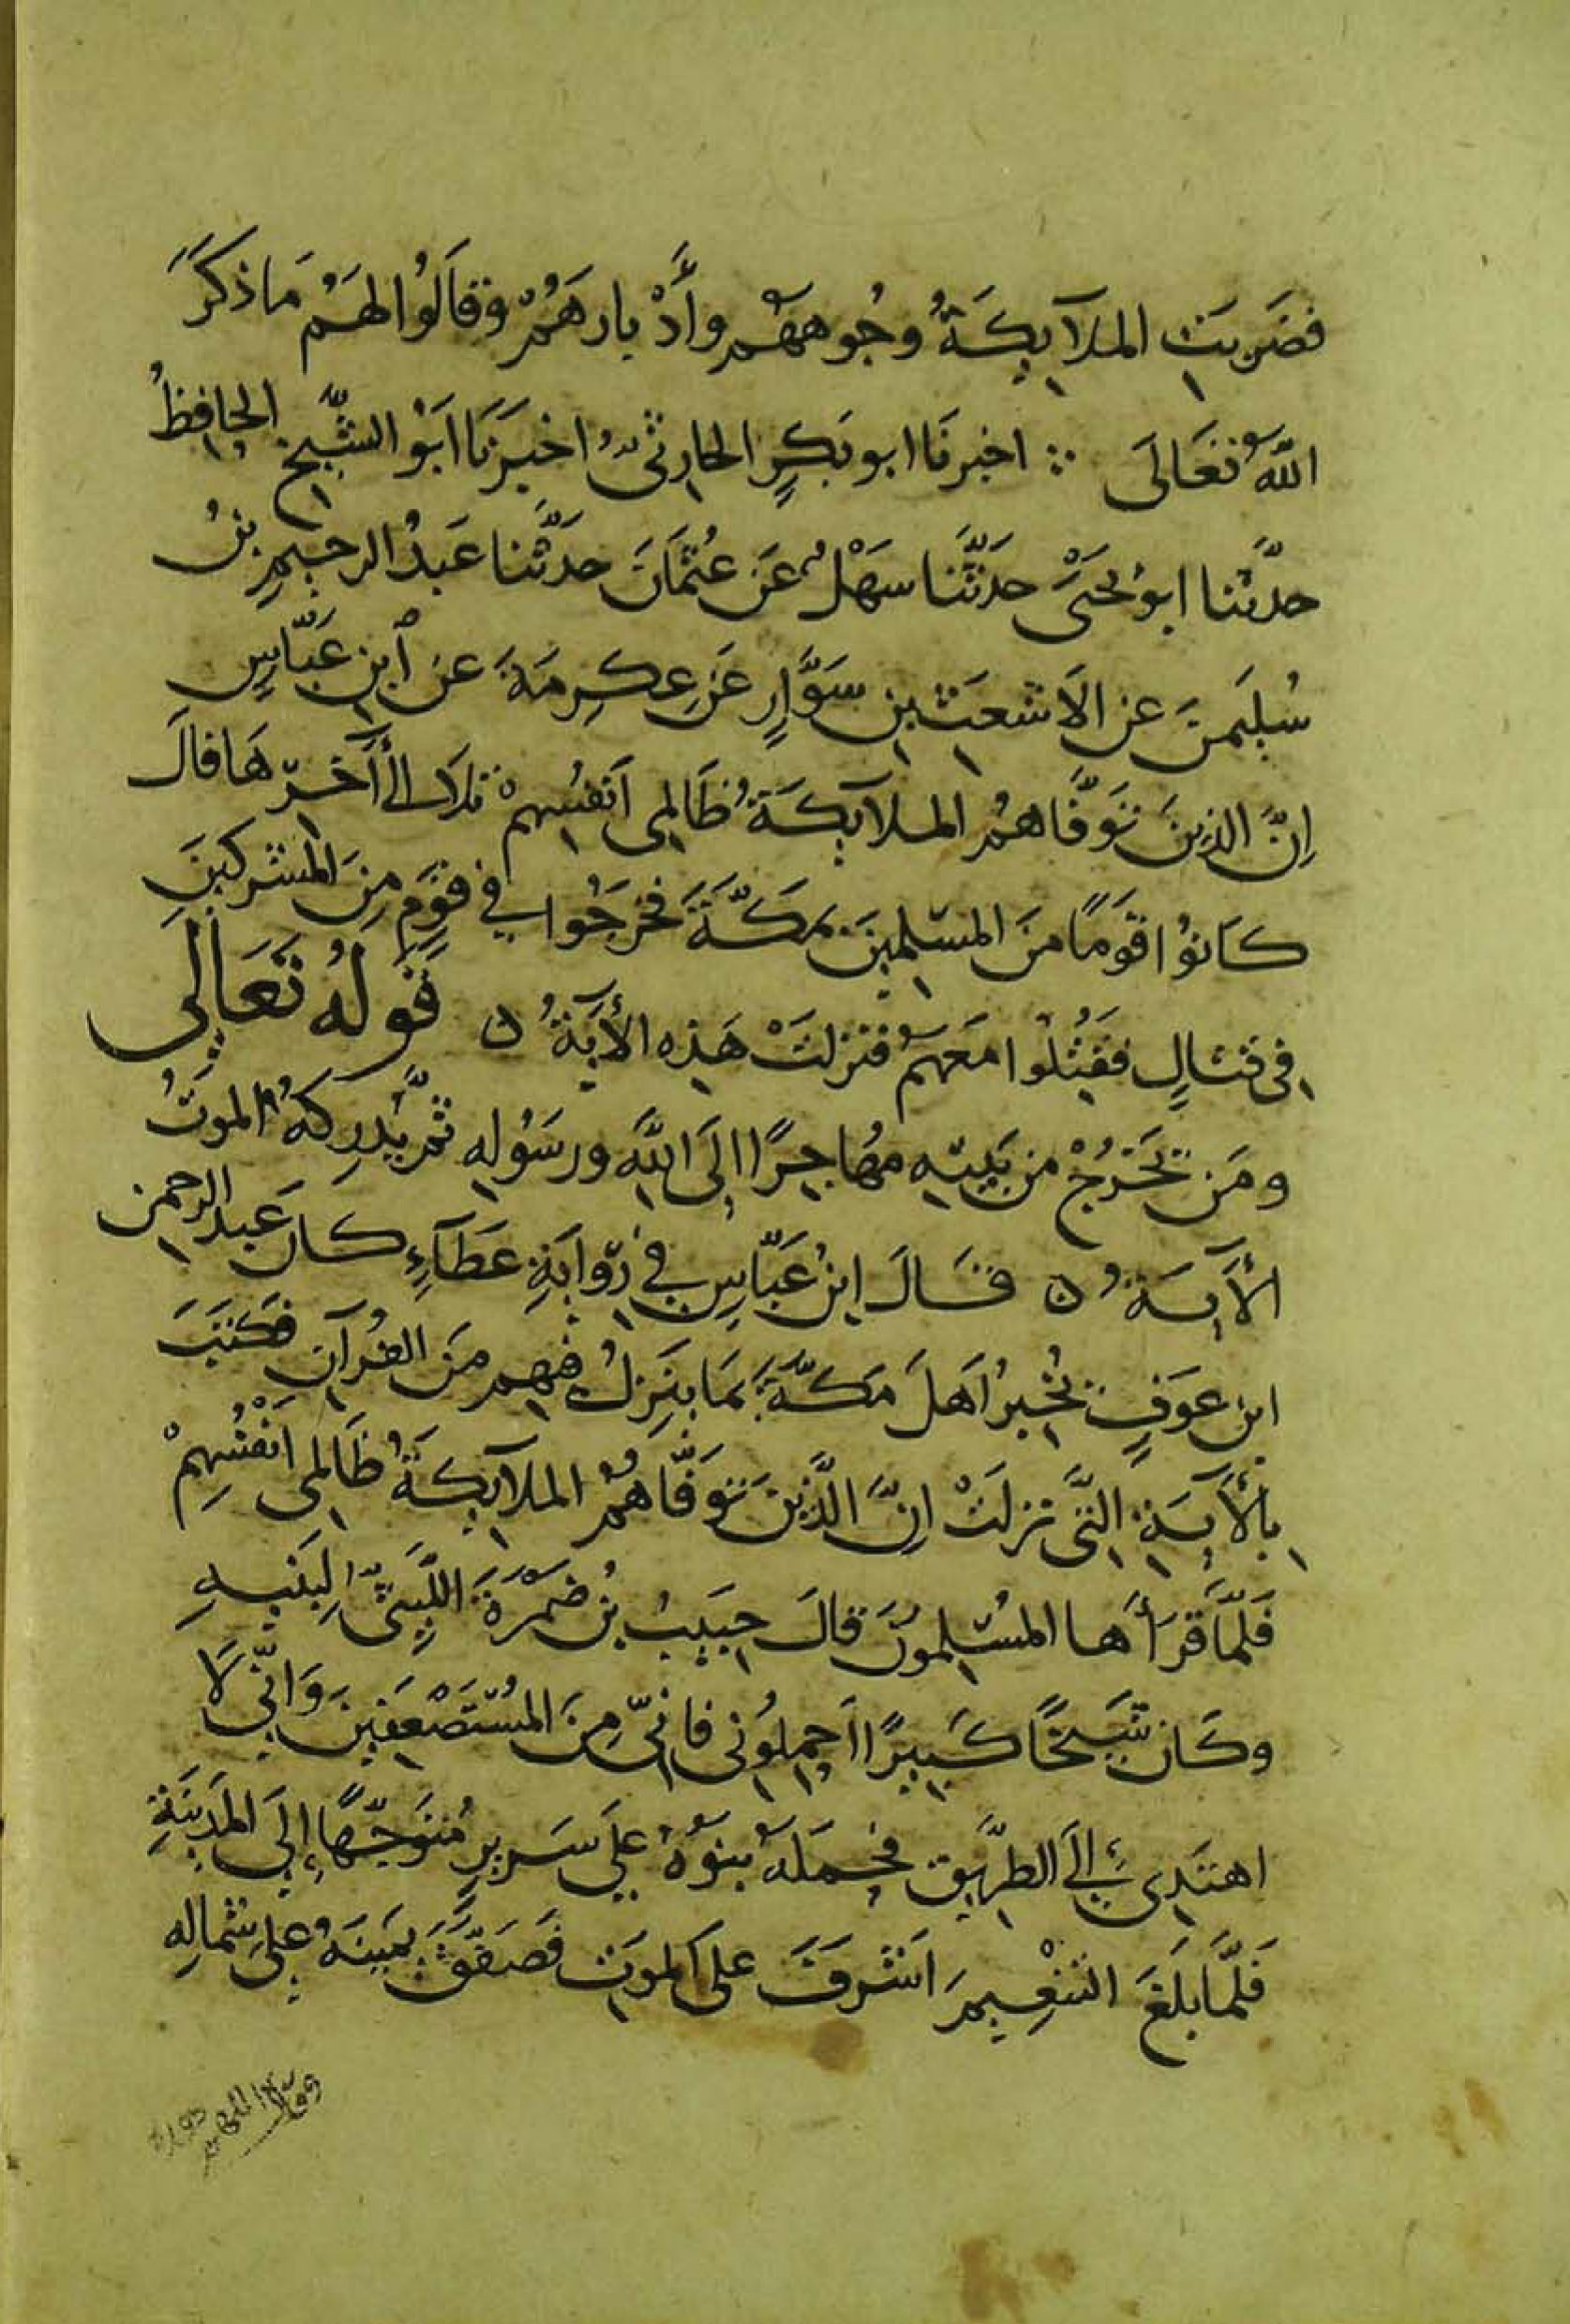 فضَربَتِ الملآيِكَةُ وجُوههُم وأَدْبارهُمْ وقالُوا لهَمُ مَا ذكَرَ
اللهُ تعَالَى ∴ اخبرنَا ابو بَكرٍ الحارثىُّ اخبَرَنَا ابَوُ الشَّيخِ الحافِظُ
حدّثنا ابوُ يحَيَى حدَّثنَا سهَلْ عَن عُثمَانَ حدَّثنا عَبدُ الرحيمِ بنُ
سُليَمنَ عن الاَشعَثِ بنِ سَوَّارٍ عَن عِكرِمَةَ عنِ ٱبنِ عَبّاسٍ
اِنَّ الذِينَ تَوَفَّاهمُ الملآيِكَةُ ظَالِمِى اَنفسُهِمْ تلاَ الىَ آخرِّهَا قالَ
كانَوُا قوَمًا منَ المسُلِمِينَ بمَكَّةَ فخَرجَوُا فِي قوَمٍ مِنَ المشرِكينَ
فِى قتالٍ فقُتلُوا معَهُمْ فنزلتْ هَذِه الأيَةُ ن قَولهُ تَعَالَى
ومَن يَخرُجْ من بَيتِهِ مهُاجِرًا اِلىَ اللَّهِ ورسَوُلِهِ ثمَّ يُدرِكهُ الموَتُ
الأَيةُ ن قالَ ابنُ عَبّاسٍ فِي رّوايَةِ عَطَآءٍ كانَ عَبد الرحمنِ
ابن عوَفٍ يُخبِرُ اَهلَ مَكّةَ بمَا ينَزِلُ فيهِم منَ القُرآنِ فكَتبَ
بِالأَيَةِ التَّى نزلتْ اِنَّ الَّذِينَ تَوَفَّاهمُ الملآيِكَةُ ظَالِمِى اَنفْسُهِمْ
فَلمَّا قرَأَها المسُلِمُونَ قالَ حبَيِبُ بنُ ضَمْرَةَ اللَّيثِىُّ لِبَنيهِ
وكَان شيَخًا كَبيِرًا احمِلوُنِى فانِّى مِنَ المسُتَضْعَفِينَ وَانِّي لاَ
اهتَدِى إلَى الطرِيق فحَملَهُ بنَوُهُ علَي سَريرٍ مُتَوجِّهًا إلَي المدَينَةِ
فَلمَّا بلَغَ التنْعِيمَ اَشْرفَ علَى الموَتِ فَصَفّقَ يمَينهُ علَى شِمالِهِ